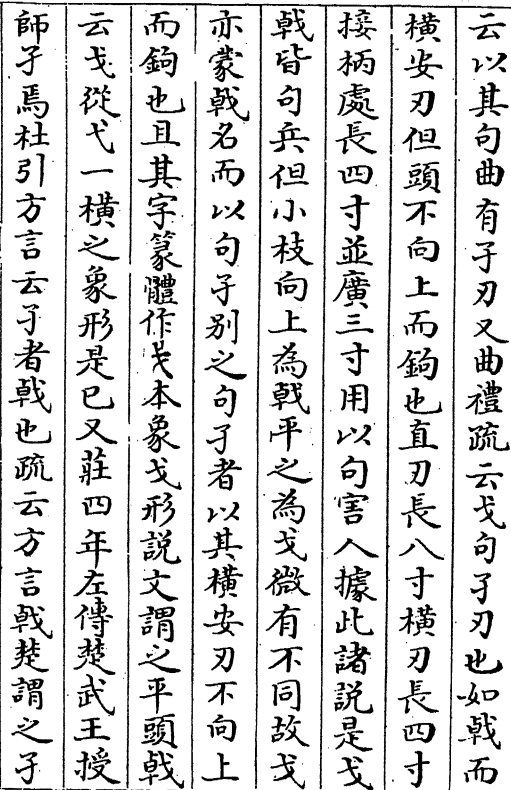 云以其句曲有孑刃又曲禮疏云戈句孑刃也如戟而
橫安刃但頭不向上而鉤也直刃長八寸橫刃長四寸
接柄處長四寸並廣三寸用以句害人據此諸説是戈
戟皆句兵但小枝向上為戟平之為戈微有不同故戈
亦蒙戟名而以句孑别之句孑者以其橫安刃不向上
而鉤也且其字篆體作戈本象戈形説文謂之平頭戟
云戈從弋一橫之象形是已又莊四年左傳楚武王授
師孑焉杜引方言云孑者戟也疏云方言戟楚謂之孑